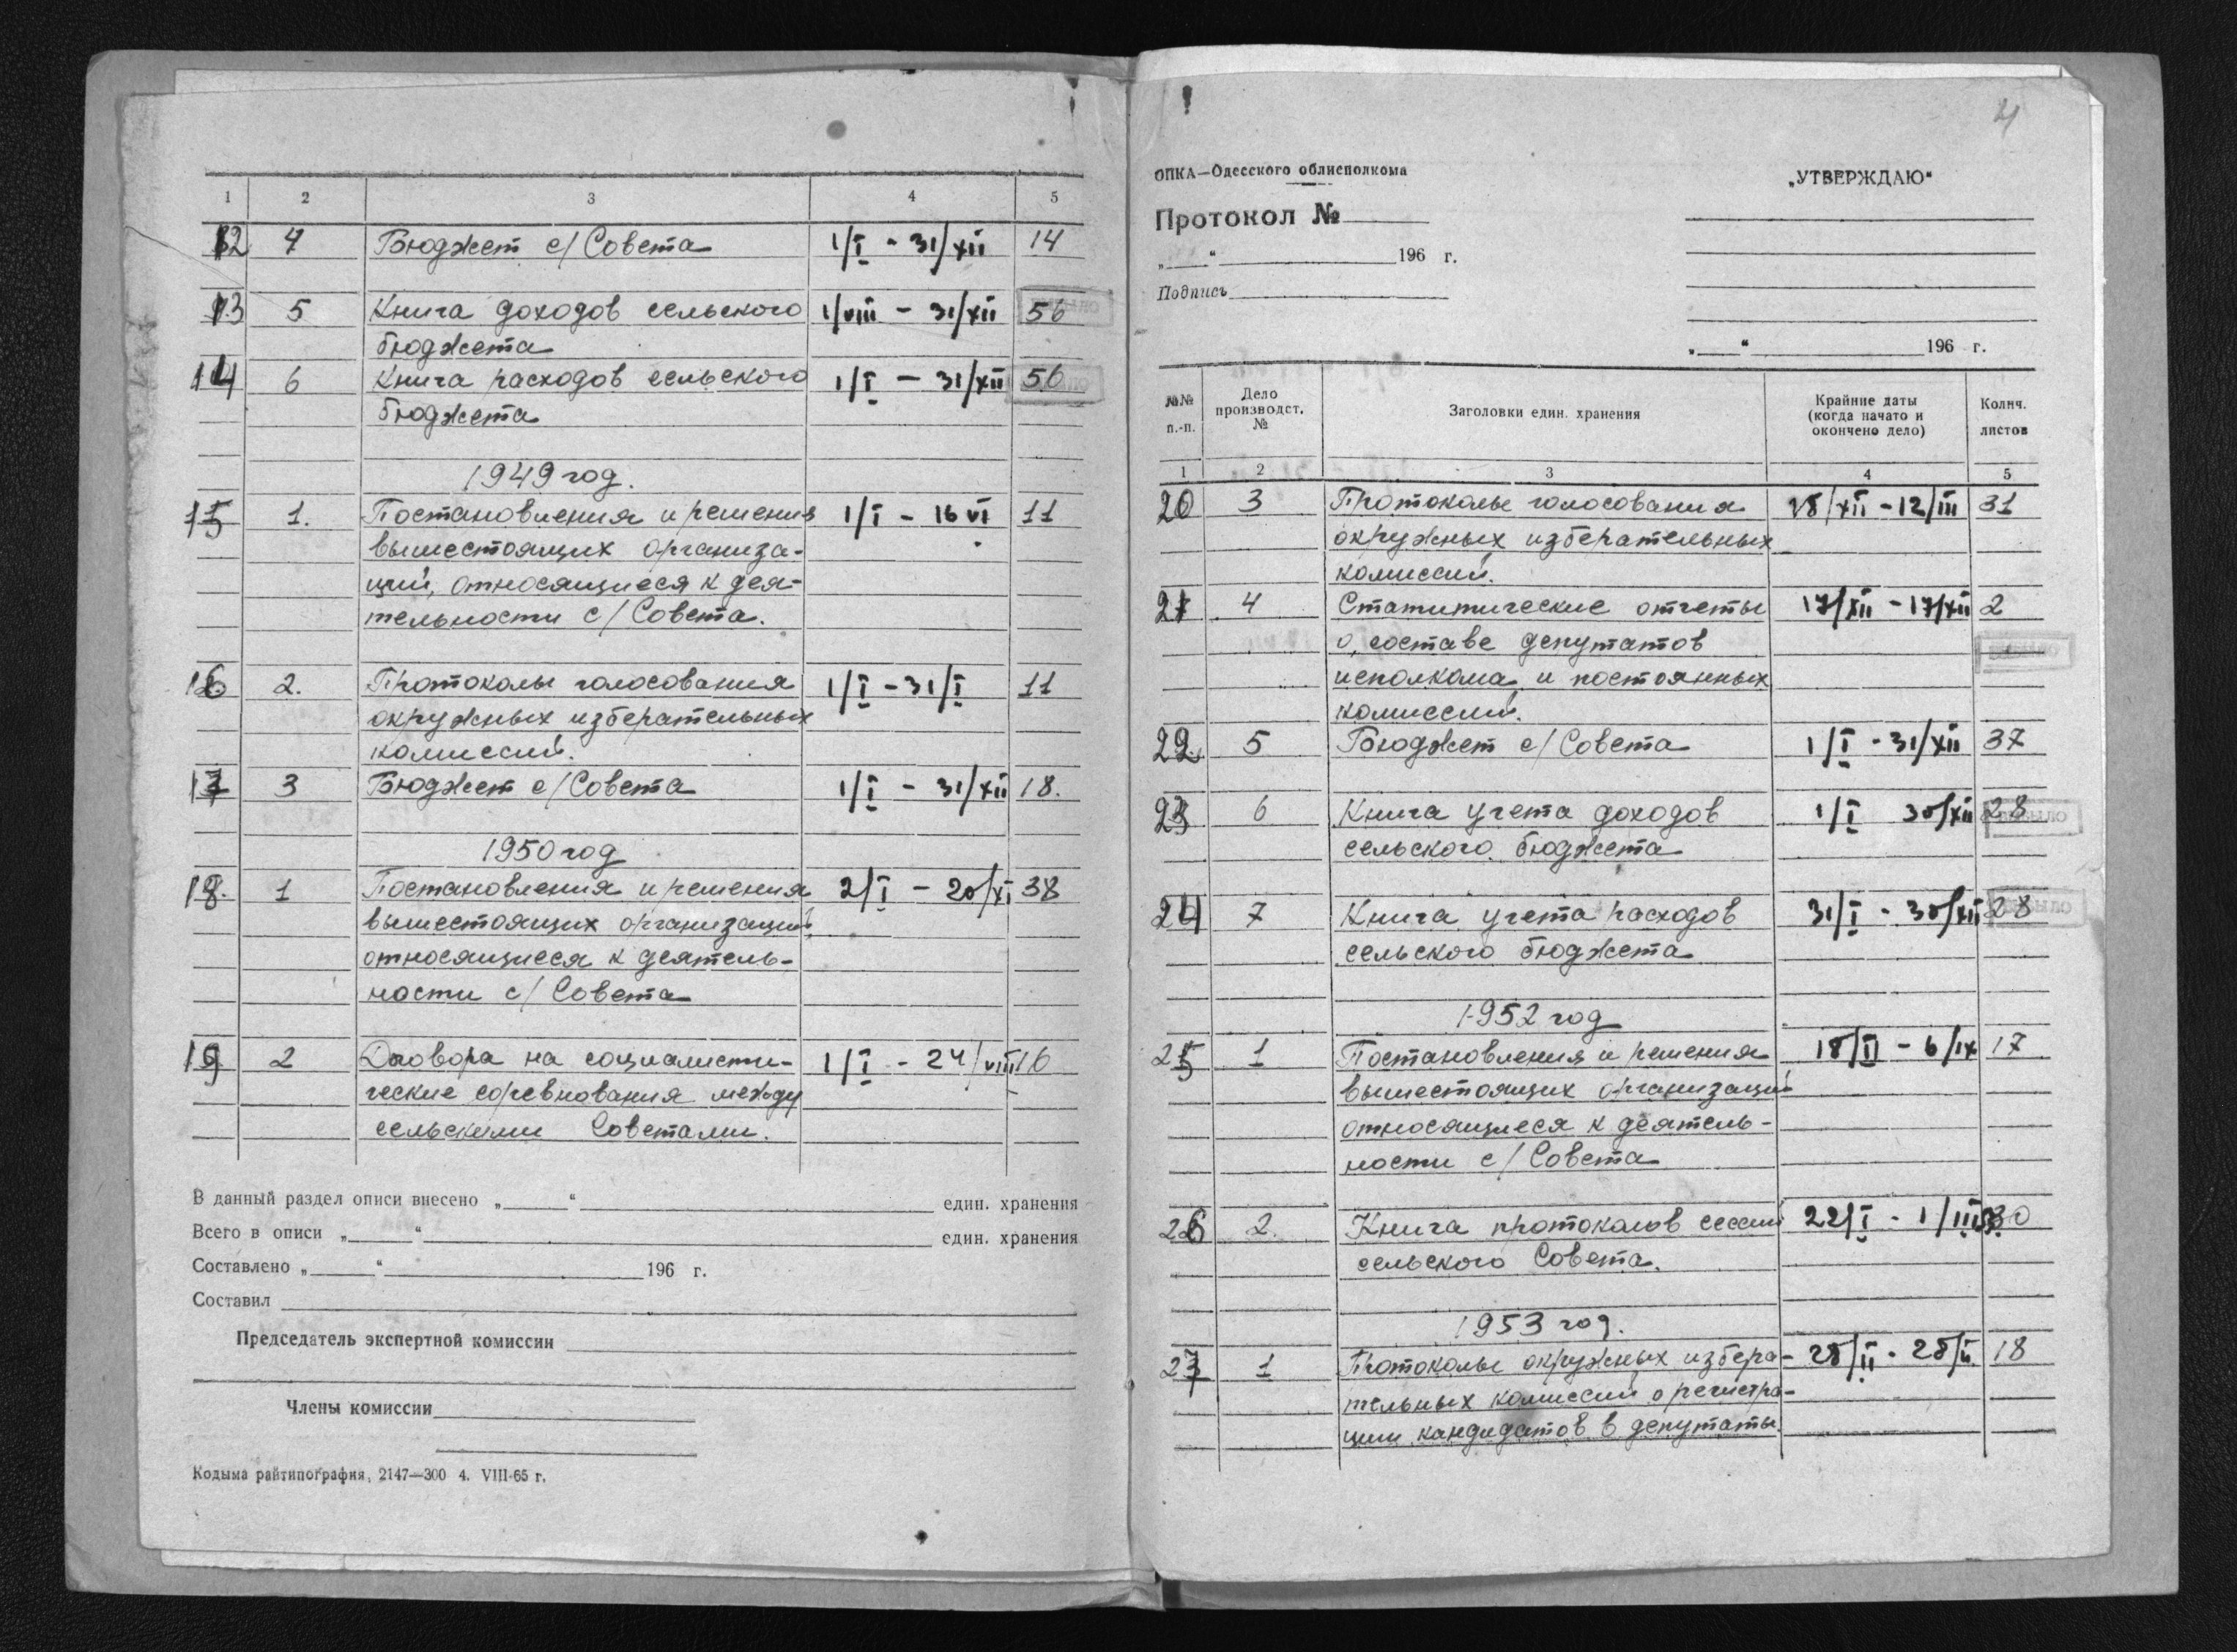 1 2 3 4 5
12 4 Бюджет с/Совета 1/I - 31/XII 14
13 5 Книга доходов сельского 1/VIII - 31/XII 56
бюджета
14 6 Книга расходов сельского 1/I - 31/XII 50
бюджета
1949 год.
15 1. Постановления и решения 1/I - 16 VI 11
вышестоящих организа-
ций, относящиеся к дея-
тельности с/Совета.
16 2. Протоколы голосования 1/I - 31/I 11
окружных изберательных
комиссий.
17 3 Бюджет с/Совета 1/I - 31/XII 18.
1950 год
18. 1 Постановления и решения 2/I - 20/XI 38
вышестоящих организаций,
относящиеся к деятель-
ности с/Совета
19 2 Договора на социалисти- 1/I - 24/VIII 16
ческие соревнования между
сельскими Советами.
В данный раздел описи внесено „ “ един. хранения
Всего в описи „ “ един. хранения
Составлено „ “ 196 г.
Составил
Председатель экспертной комиссии
Члены комиссии
Кодыма райтипография, 2147—300 4. VIII-65 г.
4
ОПКА—Одесского облисполкома
„УТВЕРЖДАЮ“
Протокол №
„ “ 196 г.
Подпись
„ “ 196 г.
№№ п.-п. Дело производст. № Заголовки един. хранения Крайние даты (когда начато и окончено дело) Колич. листов
1 2 3 4 5
20 3 Протоколы голосования 28/XII - 12/III 31
окружных изберательных
комиссий.
21 4 Статитические отчеты 17/XII - 17/XII 2
о составе депутатов
исполкома и постоянных
комиссий.
22. 5 Бюджет с/Совета 1/I - 31/XII 37
23 6 Книга учета доходов 1/I 30/XII 28
сельского бюджета
24 7 Книга учета расходов 31/I - 30/XII 28
сельского бюджета
1952 год
25 1 Постановления и решения 18/II - 6/IX 17
вышестоящих организаций
относящиеся к деятель-
ности с/Совета
26 2. Книга протоколов сессий 22/I - 1/III 30
сельского Совета.
1953 год.
27 1 Протоколы окружных избера- 28/II - 28/II 18
тельных комиссий о регистра-
ции кандидатов в депутаты.